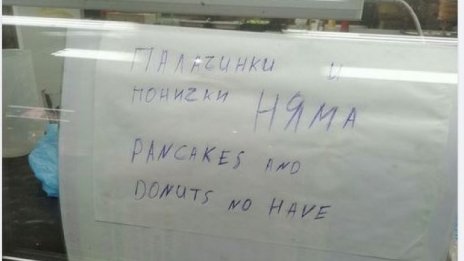 ПАЛАЧИНКИ И
ПОНИЧКИ НЯМА
PANCAKES AND
DONUTS NO HAVE